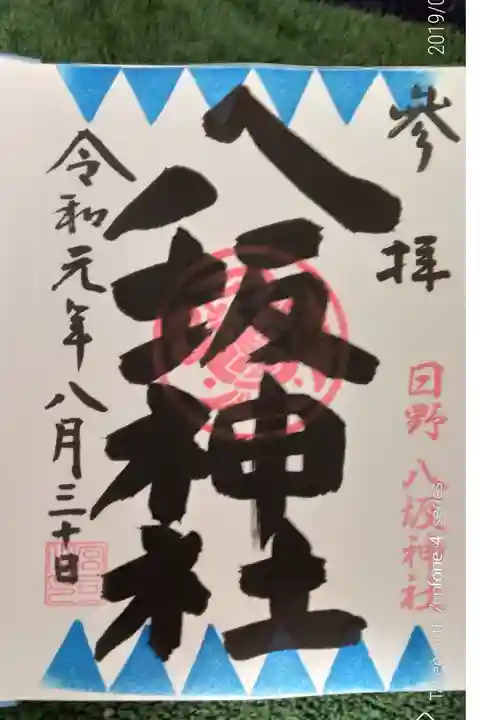 参拝
日野八坂神社
八坂神社
令和元年八月三十日
2019/0